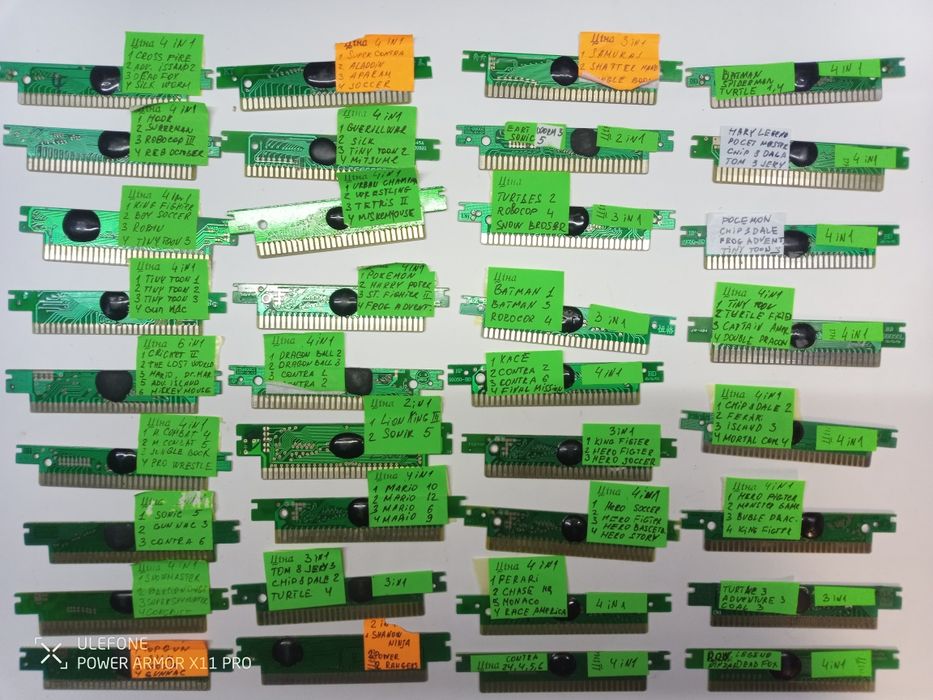 Ціна 4 IN 1
1 CROSS FIRE
2 ADV. ISLAND 2
3 DEAD FOX
4 SILK WORM
Ціна 4 IN 1
1 SUPER CONTRA
2 ALADDIN
4 SOCCER
Ціна 3 IN 1
1 SAMURAI
2 SHATTEL HAND
BATMAN
SPIDERMAN
TURTLE 1,4
4 IN 1
Ціна 4 IN 1
1 HOOK
3 ROBOCOP III
4 REDOCTOBER
Ціна 4 IN 1
1 GUERILLWAR
2 SILK
3 TINY TOON 2
4 MITSUME
SONIC 5
2 IN 1
HARY LEGEND
POCET MASTER
CHIP & DALE
TOM & JERY
4 IN 1
Ціна 4 IN 1
1 KING FIGHTER
2 BOY SOCCER
3 ROBIN
4 TINY TOON 3
Ціна 4 IN 1
1 URBAN CHAMPION
2 WRESTLING
3 TETRIS II
4 MIСKEYMOUSE
Ціна
TURTLES 2
ROBOCOP 4
SNOW BROSER
3 IN 1
POCEMON
CHIP & DALE
FROG ADVENT
TINY TOON 3
4 IN 1
Ціна 4 IN 1
1 TINY TOON 1
2 TINY TOON 2
3 TINY TOON 3
4 GUN NAC
4 IN 1
1 POKEMON
2 HARRY POTER
3 ST. FIGHTER II
4 FROG ADVENT
Ціна
BATMAN 1
BATMAN 3
ROBOCOP 4
3 IN 1
Ціна 4 IN 1
1 TINY TOON
2 TURTLE FIGT
3 CAPTAIN AMER
4 DOUBLE DRAGON
4 IN 1
Ціна 6 IN 1
1 CRICKET II
2 THE LOST WORLD
3 MARIO, DR. MAR
5 ADV. ISLAND
6 MICKEY MOUSE
Ціна 4 IN 1
1 DRAGON BALL 2
2 DRAGON BALL 3
3 CONTRA 1
CONTRA 2
Ціна
1 RACE
2 CONTRA 2
3 CONTRA 6
4 FINAL MISSION
4 IN 1
Ціна 4 IN 1
1 CHIP & DALE 2
2 FERARI
3 ISLAND 3
4 MORTAL COM 4
4 IN 1
Ціна 4 IN 1
1 M. COMBAT 4
2 M. COMBAT 5
3 JUNGLE BOOK
4 PRO WRESTLE
Ціна 2 IN 1
1 LION KING III
2 SONIK 5
3 IN 1
1 KING FIGTER
2 HERO FIGTER
3 HERO SOCCER
Ціна
1 SONIC 5
2 GUN NAC 3
3 CONTRA 6
Ціна 4 IN 1
1 MARIO 10
2 MARIO 12
3 MARIO 6
4 MARIO 9
Ціна 4 IN 1
1 HERO SOCCER
2 HERO FIGTER
3 HERO BASCETB
4 HERO STORY
Ціна 4 IN 1
1 HERO FIGTER
2 MONSTER GAME
3 BUBLE DRAC.
4 KING FIGTER
Ціна 4 IN 1
Ціна 3 IN 1
TOM & JERY 3
CHIP & DALE 2
TURTLE 4
3 IN 1
Ціна 4 IN 1
1 FERARI
2 CHASE HQ
3 MONACO
4 RACE AMERICA
4 IN 1
TURTLE 3
ADVENTURE 3
GOAL 3
3 IN 1
TOPGUN
4 GUNNAC
2 IN
1 SHADOW
NINJA
2 POWER
RANGERS
CONTRA
Ціна 2,4,5,6
4 IN 1
LEGEND
DEAD FOX
4 IN 1
ULEFONE
POWER ARMOR X11 PRO